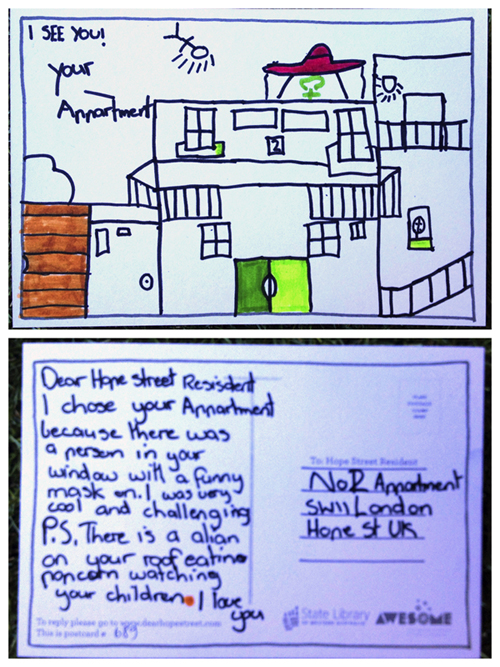 I SEE YOU!
your
Appartment
2
Dear Hope street Resisdent
I chose your Appartment
because there was
a person in your
window with a funny
mask on. I was very
cool and challenging
P.S. There is a alian
on your roof eating
popcorn watching
your children. I love
you
To reply please go to www.dearhopestreet.com
This is postcard # 689
To: Hope Street Resident
No2 Appartment
SW11 London
Hope St UK
State Library
OF WESTERN AUSTRALIA
AWESOME